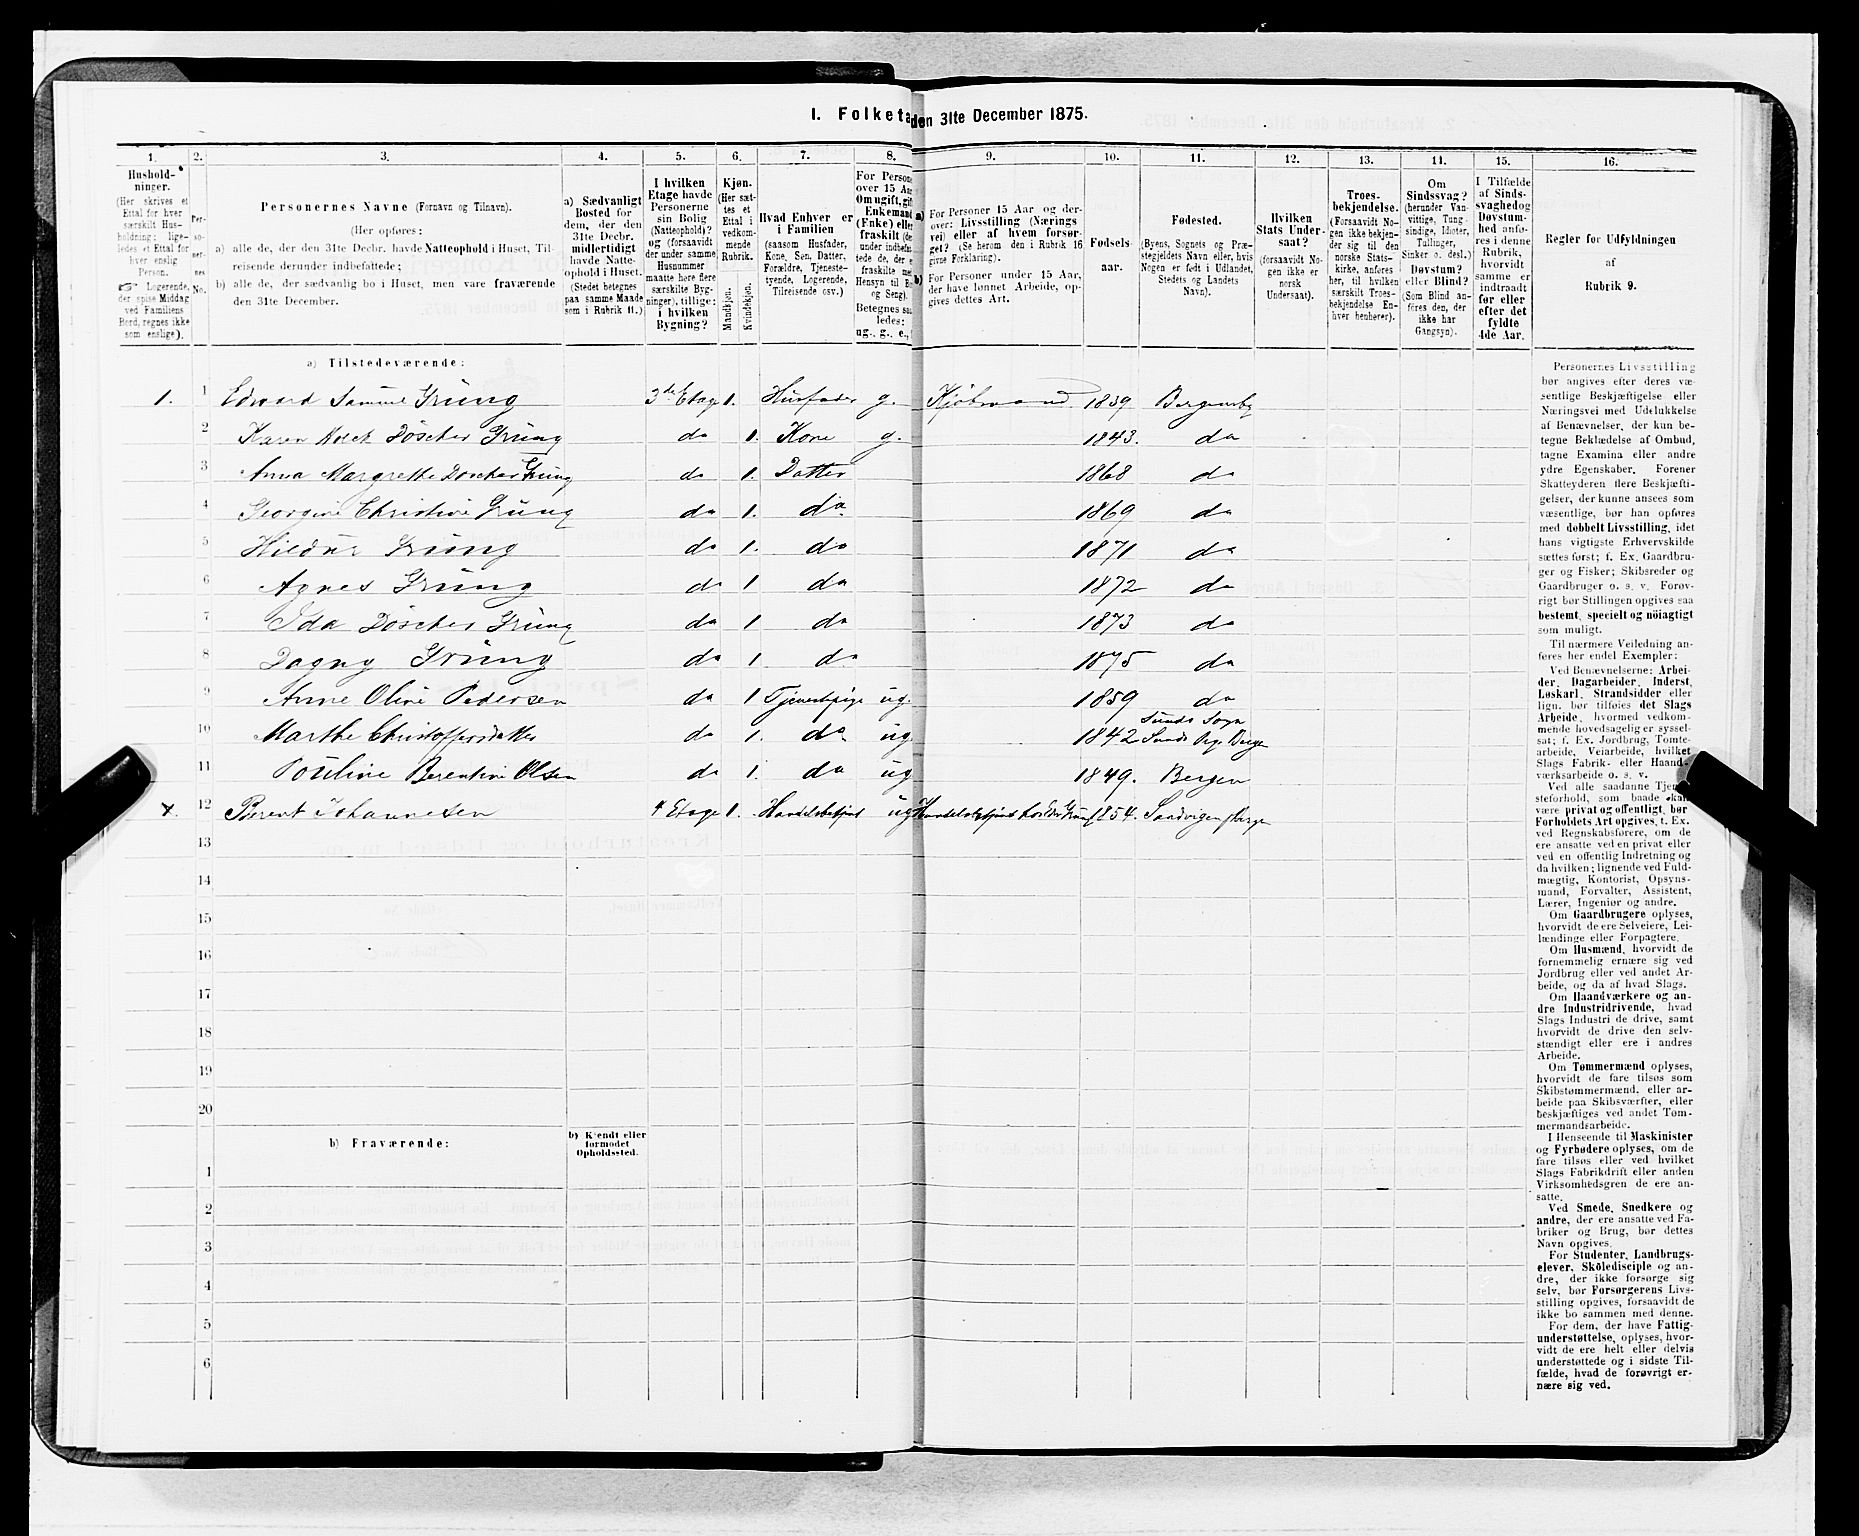 I. Folketa den 31te December 1875.
1. 2. 3. 4. 5. 6. 7. 8. 9. 10. 11. 12. 13. 14. 15. 16.
Hushold-
ninger.
(Her skrives et
Ettal for hver
særskilt Hus-
holdning; lige-
ledes et Ettal for
hver enslig
Person.
Logerende,
der spise Middag
ved Familiens
Bord, regnes ikke
som enslige).
Per-
so-
ner-
nes
No.
Personernes Navne (Fornavn og Tilnavn).
(Her opføres:
a) alle de, der den 31te Decbr. havde Natteophold i Huset, Til-
reisende derunder indbefattede;
b) alle de, der sædvanlig bo i Huset, men vare fraværende
den 31te December.
a) Sædvanligt
Bosted for
dem, der den
31te Decbr.
midlertidigt
havde Natte-
ophold i Huset.
(Stedet betegnes
paa samme Maade
som i Rubrik 11.)
I hvilken
Etage havde
Personerne
sin Bolig
(Natteophold)?
og (forsaavidt
der under samme
Husnummer
maatte høre flere
særskilte Byg-
ninger), tillige:
i hvilken
Bygning?
Kjøn.
(Her sæt-
tes et
Ettal i
vedkom-
mende
Rubrik.
Mandkjøn.
Kvindekjøn.
Hvad Enhver er
i Familien
(saasom Husfader,
Kone, Søn, Datter,
Forældre, Tjeneste-
tyende, Logerende,
Tilreisende osv.)
For Persone
over 15 Aa
Om ugift, gif
Enkemand
(Enke) eller
fraskilt (de
under indbefat
tede de, der e
fraskilte me
Hensyn til Bo
og Seng).
Betegnes saa
ledes:
ug., g., e.,
a) For Personer 15 Aar og der-
over: Livsstilling (Nærings
vei) eller af hvem forsør-
get? (Se herom den i Rubrik 16
givne Forklaring).
b) For Personer under 15 Aar,
der have lønnet Arbeide, op-
gives dettes Art.
Fødsels-
aar.
Fødested.
(Byens, Sognets og Præ-
stegjeldets Navn eller, hvis
Nogen er født i Udlandet,
Stedets og Landets
Navn).
Hvilken
Stats Under-
saat?
(forsaavidt No-
gen ikke er
norsk
Undersaat).
Troes-
bekjendelse.
(Forsaavidt No-
gen ikke bekjen-
der sig til den
norske Stats-
kirke, anføres
her, til hvilken
særskilt Troes-
bekjendelse En-
hver henhører).
Om
Sindssvag?
(herunder Van-
vittige, Tung-
sindige, Idioter,
Tullinger,
Sinker o. desl.)
Døvstum?
eller Blind?
(Som Blind an-
føres den, der
ikke har
Gangsyn).
I Tilfælde
af Sinds-
svaghed og
Døvstum-
hed anfø-
res i denne
Rubrik,
hvorvidt
samme er
indtraadt
før eller
efter det
fyldte
4de Aar.
Regler for Udfyldningen
af
Rubrik 9.
a) Tilstedeværende:
1. 1 Edward Samuel Grüng 3de Etage 1. Husfader g. Kjøbmand 1839 Bergensby
2 Karen Holck Döscher Grüng do 1. Kone g. 1843. do
3 Anna Margrethe Döscher Grüng do 1. Datter 1868 do
4 Georgine Christine Grüng do 1. do 1869 do
5 Hildur Grüng do 1. do 1871 do
6 Agnes Grüng do 1 do 1872 do
7 Ida Döscher Grüng do 1 do 1873 do
8 Dagny Grüng do 1 do 1875 do
9 Anne Oline Pedersen do 1 Tjenestepige ug. 1859 do
10 Marthe Christoffersdatter do 1. do ug 1842 Sunds Sogn
Sunds Pgj Bergen
11 Pouline Berentine Olsen do 1. do ug 1849. Bergen
x. 12 Berent Johannesen 4 Etage 1. Handelsbetjent ug Handelsbetjent hos Edv Grüng 1854. Sandvigen Bergen
13
14
15
16
17
18
19
20
b) Fraværende:
b) Kjendt eller
formodet
Opholdssted.
1
2
3
4
5
6
Personernes Livsstilling
bør angives efter deres væ-
sentlige Beskjæftigelse eller
Næringsvei med Udelukkelse
af Benævnelser, der kun be-
tegne Beklædelse af Ombud,
tagne Examina eller andre
ydre Egenskaber. Forener
Skatteyderen flere Beskjæfti-
gelser, der kunne ansees som
væsentlige, bør han opføres
med dobbelt Livsstilling, idet
hans vigtigste Erhvervskilde
sættes først; f. Ex. Gaardbru-
ger og Fisker; Skibsreder og
Gaardbruger o. s. v. Forøv-
rigt bør Stillingen opgives saa
bestemt, specielt og nöiagtigt
som muligt.
Til nærmere Veiledning an-
føres her endel Exempler:
Ved Benævnelserne: Arbei-
der, Dagarbeider, Inderst,
Løskarl, Strandsidder eller
lign. bør tilføies det Slags
Arbeide, hvormed vedkom-
mende hovedsagelig er syssel-
sat; f. Ex. Jordbrug, Tomte-
arbeide, Veiarbeide, hvilket
Slags Fabrik- eller Haand-
værksarbeide o. s. v.
Ved alle saadanne Tjene
steforhold, som baade kan
være privat og offentligt, bør
Forholdets Art opgives, t. Ex.
ved Regnskabsførere, om de
ere ansatte ved en privat eller
ved en offentlig Indretning og
da hvilken; lignende ved Fuld-
mægtig, Kontorist, Opsyns-
mand, Forvalter, Assistent,
Lærer, Ingeniør og andre.
Om Gaardbrugere oplyses,
hvorvidt de ere Selveiere, Lei-
lændinge eller Forpagtere.
Om Husmænd, hvorvidt de
fornemmelig ernære sig ved
Jordbrug eller ved andet Ar-
beide, og da af hvad Slags.
Om Haandværkere og an-
dre Industridrivende, hvad
Slags Industri de drive, samt
hvorvidt de drive den selv-
stændigt eller ere i andres
Arbeide.
Om Tømmermænd oplyses,
hvorvidt de fare tilsøs som
Skibstømmermænd, eller ar-
beide paa Skibsværfter, eller
beskjæftiges ved andet Tøm-
mermandsarbeide.
I Henseende til Maskinister
og Fyrbødere oplyses, om de
fare tilsøs eller ved hvilket
Slags Fabrikdrift eller anden
Virksomhedsgren de ere an-
satte.
Ved Smede, Snedkere og
andre, der ere ansatte ved Fa-
briker og Brug, bør dettes
Navn opgives.
For Studenter, Landbrugs-
elever, Skõledisciple og an-
dre, der ikke forsørge sig
selv, bør Forsørgerens Livs-
stilling opgives, forsaavidt de
ikke bo sammen med denne.
For dem, der have Fattig-
understøttelse, oplyses, hvor-
vidt de ere helt eller delvis
understøttede og i sidste Til-
fælde, hvad de forøvrigt er-
nære sig ved.